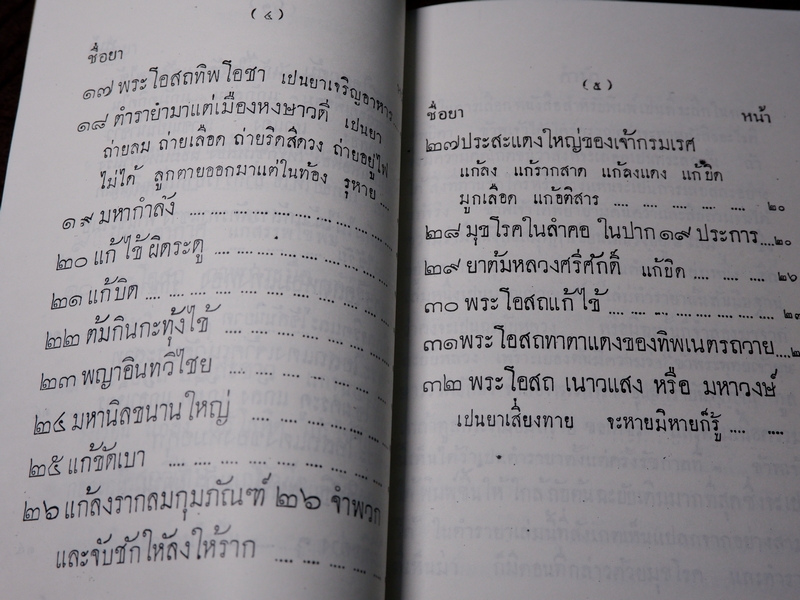 (๔)
ชื่อยา
๑๗ พระโอสถทิพโอชา เปนยาเจริญอาหาร
๑๘ ตำรายามาแต่เมืองหงษาวดี เปนยา
ถ่ายลม ถ่ายเลือด ถ่ายริดสีดวง ถ่ายอยู่ไฟ
ไม่ได้ ลูกตายออกมาแต่ในท้อง รุหาย ....
๑๙ มหากำลัง .... .... .... .... ....
๒๐ แก้ไข้ผิดระดู .... .... .... ....
๒๑ แก้บิด .... .... .... .... .... ....
๒๒ ต้มกินกะทุ้งไข้ .... .... .... ....
๒๓ พญาอินทวิไชย .... .... .... ....
๒๔ มหานิลขนานใหญ่ .... .... .... ....
๒๕ แก้ขัดเบา .... .... .... .... ....
๒๖ แก้ลงรากลมกุมภัณฑ์ ๒๖ จำพวก
และจับชักให้ลงให้ราก .... .... .... ....
(๕)
ชื่อยา หน้า
๒๗ ประสะแดงใหญ่ของเจ้ากรมเรศ
แก้ลง แก้รากสาด แก้ลงแดง แก้บิด
มูกเลือด แก้อติสาร .... .... .... .... ๒๐
๒๘ มุขโรคในลำคอ ในปาก ๑๙ ประการ .... ๒๐
๒๙ ยาต้มหลวงศรีศักดิ์ แก้บิด .... .... .... ๒๖
๓๐ พระโอสถแก้ไข้ .... .... .... .... ....
๓๑ พระโอสถทาตาแดงของทิพเนตรถวาย ....
๓๒ พระโอสถ เนาวแสง หรือ มหาวงษ์
เปนยาเสี่ยงทาย จะหายมิหายก็รู้ .... ....